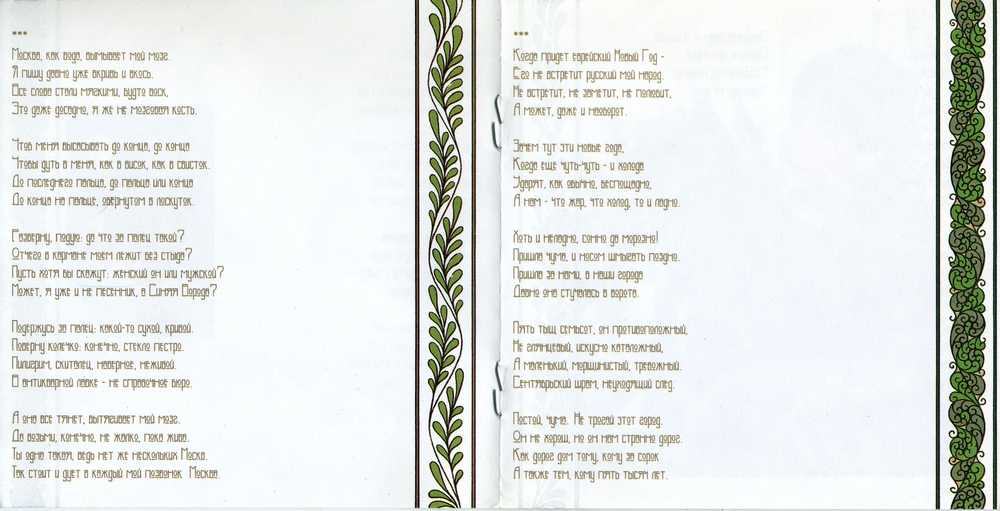 ***
Москва, как вода, вымывает мой мозг.
Я пишу давно уже вкривь и вкось.
Все слова стали мягкими, будто воск,
Это даже досадно, я же не мозговая кость.
Чтоб меня высасывать до конца, до конца
Чтобы дуть в меня, как в висок, как в свисток.
До последнего пальца, до пальца или конца
До конца на пальце, обернутом в лоскуток.
Разверну, подую: да что за палец такой?
Отчего в кармане моем лежит без стыда?
Пусть хотя бы скажут: женский он или мужской?
Может, я уже и не песенник, а Синяя Борода?
Подержусь за палец: какой-то сухой, кривой.
Поверну колечко: конечно, стекло пестро.
Пилигрим, скиталец, наверное, неживой.
В антикварной лавке - не справочное бюро.
А она все тянет, вытягивает мой мозг.
Да возьми, конечно, не жалко, пока жива.
Ты одна такая, ведь нет же нескольких Москв.
Так стоит и дует в каждый мой позвонок Москва.
***
Когда придет еврейский Новый Год -
Его не встретит русский мой народ.
Не встретит, не заметит, не полюбит,
А может, даже и наоборот.
Зачем тут эти новые года,
Когда еще чуть-чуть - и холода
Ударят, как обычно, беспощадно,
А нам - что жар, что холод, то и ладно.
Хоть и неладно, сонно да морозно!
Пришла чума, и носом шмыгать поздно.
Пришла за нами, в наши города
Давно она стучалась в ворота.
Пять тыщ семьсот, он противоположный,
Не глянцевый, искусно каталожный,
А маленький, морщинистый, тревожный.
Сентябрьский шрам, неуходящий след.
Постой, чума. Не трогай этот город.
Он не хорош, но он нам странно дорог.
Как дорог дом тому, кому за сорок
А также тем, кому пять тысяч лет.